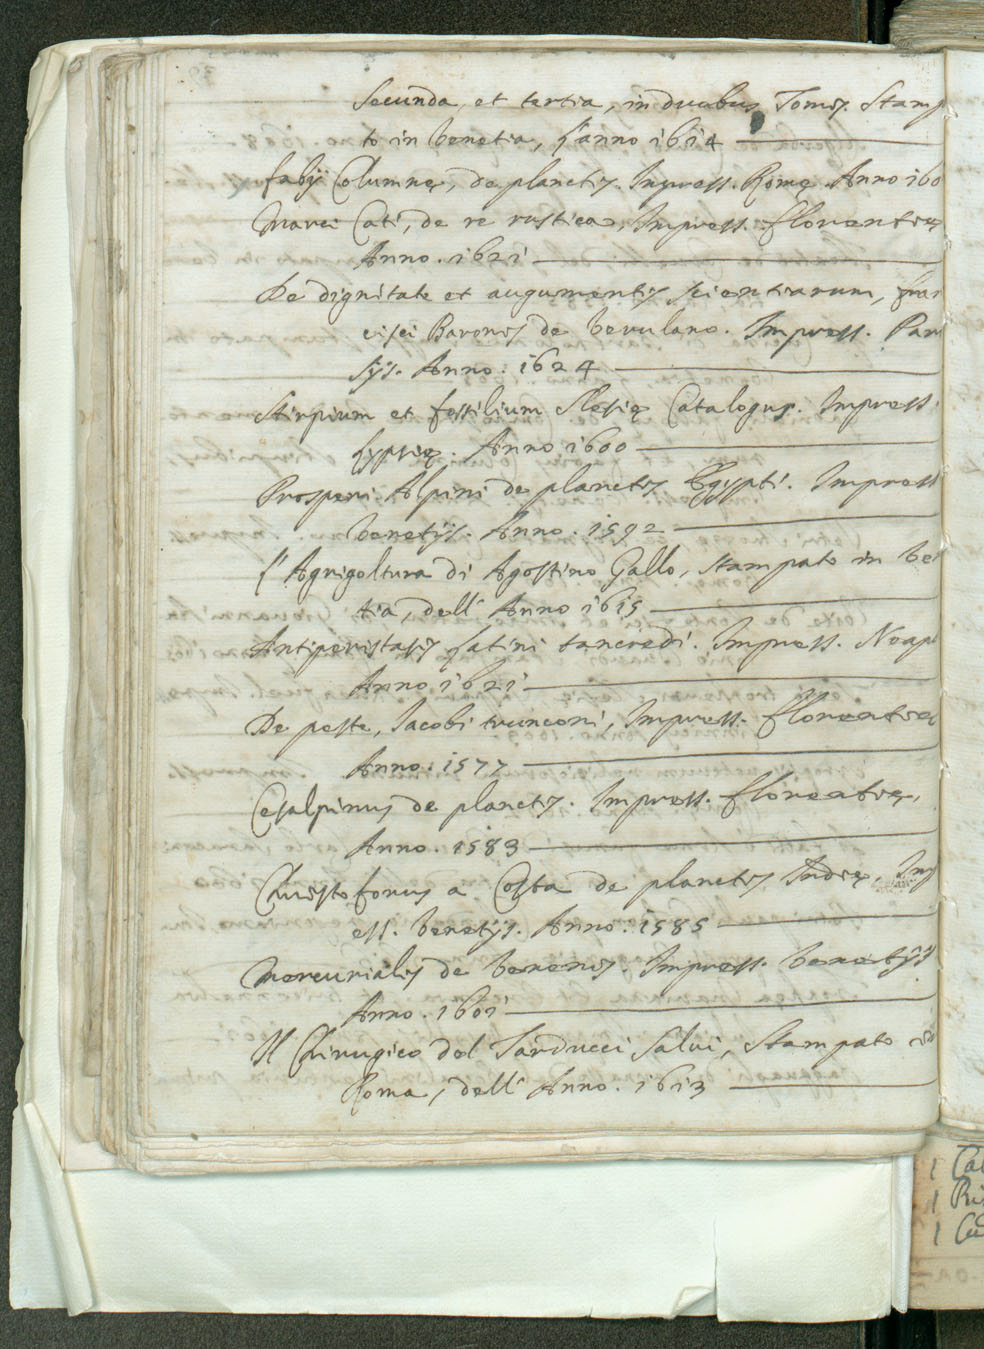 secunda, et tertia, in duobus Tomis. Stamp
to in Venetia, l'anno 1614
fabij Columnę, de planctis. Impress. Romę. Anno 160
Marci Cati, de re rustica, Impress. florentię
Anno. 1621
De dignitate et augumentis scientiarum, fran
cisci Baronis de Verulano. Impress. Pari
sijs. Anno. 1624
Stirpium et fossilium Slesię Catalogus. Impress.
Lypsię. Anno 1600
Prosperi Alpini de planctis Egypti. Impress
Venetijs. Anno. 1592
l'Agrigoltura di Agostino Gallo, stampato in Ve
tia, dell' Anno 1615
Antiperistasis latini tancredi. Impress. Neap
Anno 1621
De peste, Iacobi trunconi, Impress. florentię
Anno. 1577
Cesalpinus de planctis. Impress. florentię,
Anno. 1583
Christoforus a Costa de planctis Indię, Imp
ess. Venetijs. Anno. 1585
Mercurialis de Venenis. Impress. Venetijs
Anno. 1601
Il Chirugico del Tarducci Salvi, Stampato in
Roma, dell' Anno. 1613